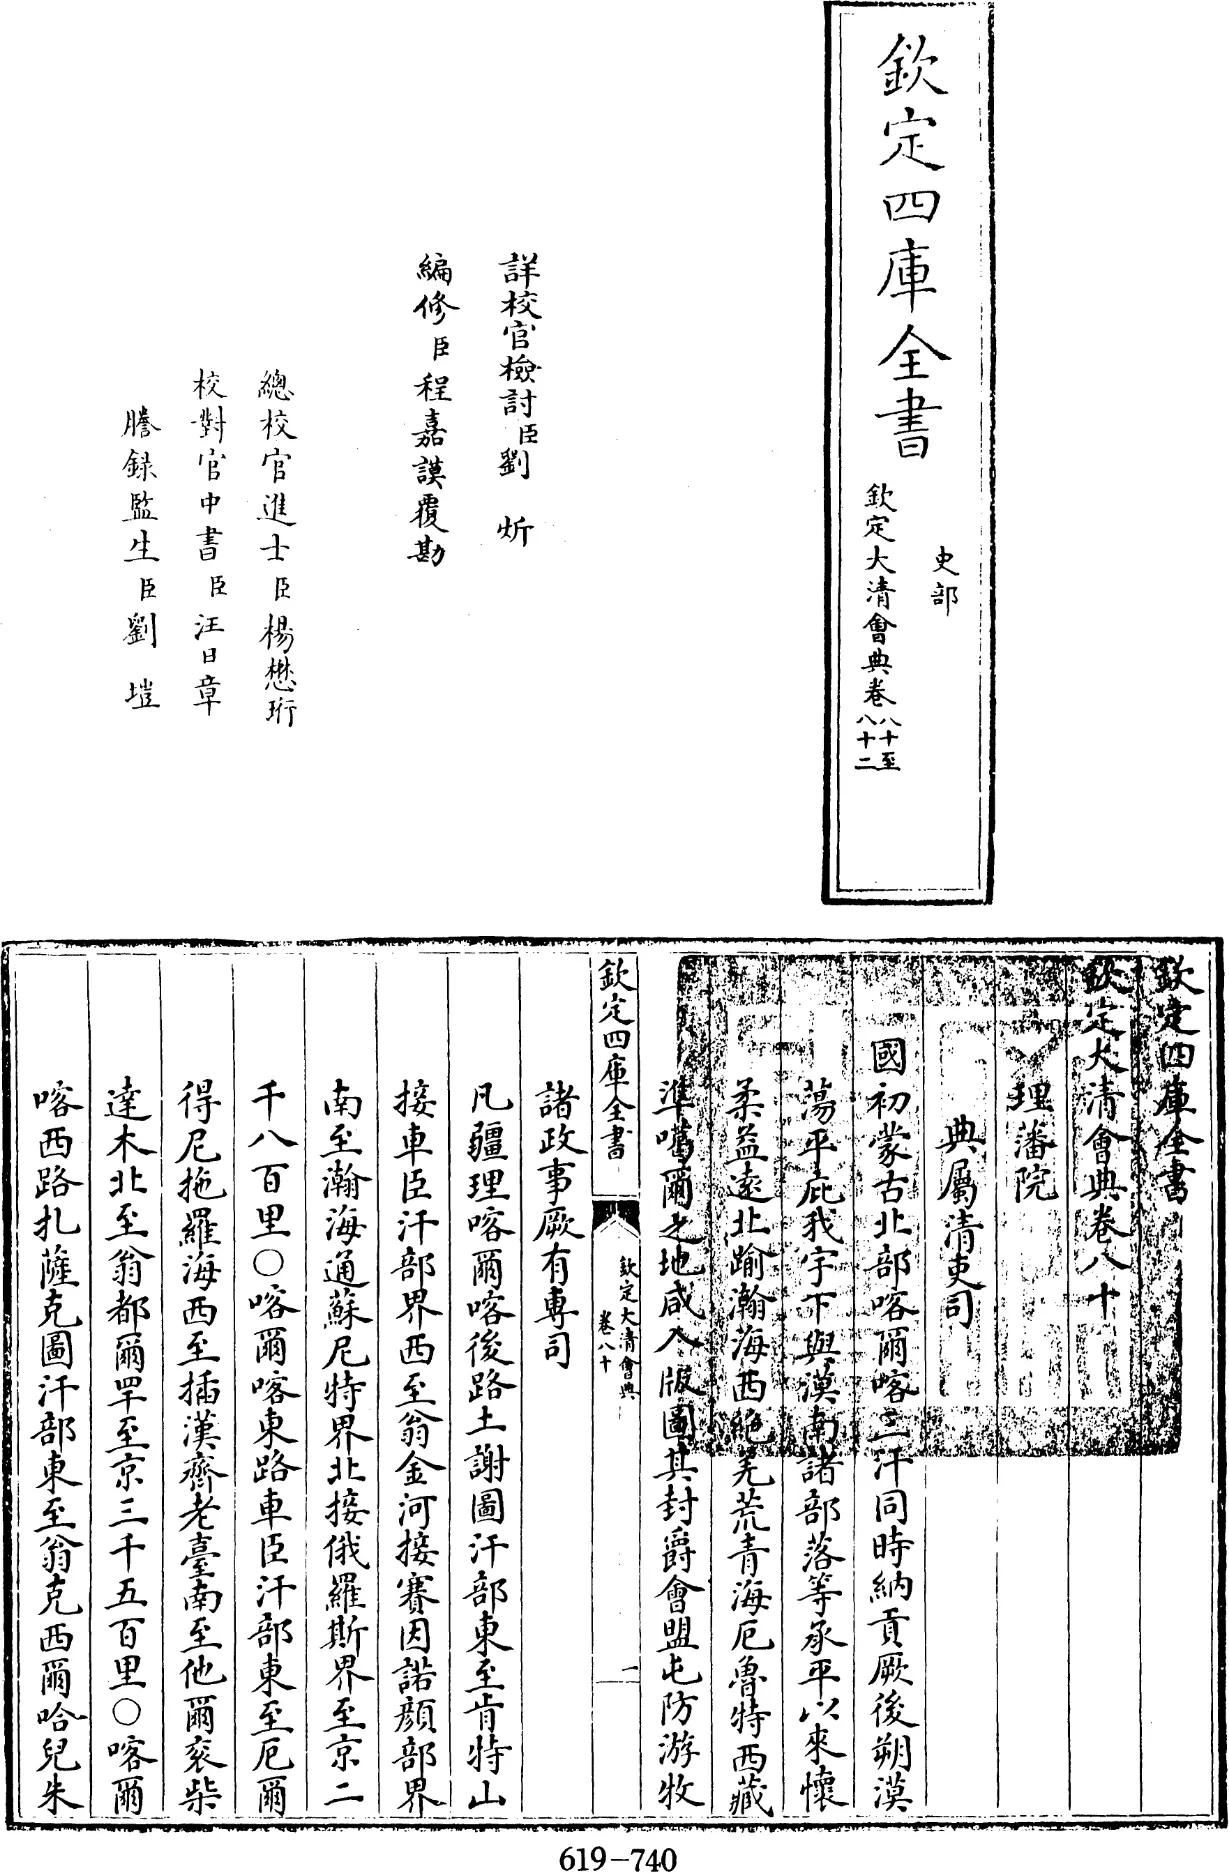 欽定四庫全書
史部
欽定大清會典卷八十至
八十二
詳校官檢討臣劉炘
編修臣程嘉謨覆勘
總校官進士臣楊懋珩
校對官中書臣汪日章
謄錄監生臣劉塏
欽定四庫全書
欽定大清會典卷八十
理藩院
典屬清吏司
國初蒙古北部喀爾喀三汗同時納貢厥後朔漠
蕩平庇我宇下與漠南諸部落等承平以來懷
柔益遠北踰瀚海西絶羌荒青海厄魯特西藏
準噶爾之地咸入版圖其封爵會盟屯防游牧
欽定四庫全書
欽定大清會典
卷八十
一
諸政事厥有專司
凡疆理喀爾喀後路土謝圖汗部東至肯特山
接車臣汗部界西至翁金河接賽因諾顔部界
南至瀚海通蘇尼特界北接俄羅斯界至京二
千八百里○喀爾喀東路車臣汗部東至厄爾
得尼拖羅海西至插漢齊老臺南至他爾袞柴
達木北至翁都爾罕至京三千五百里○喀爾
喀西路扎薩克圖汗部東至翁克西爾哈兒朱
619-740